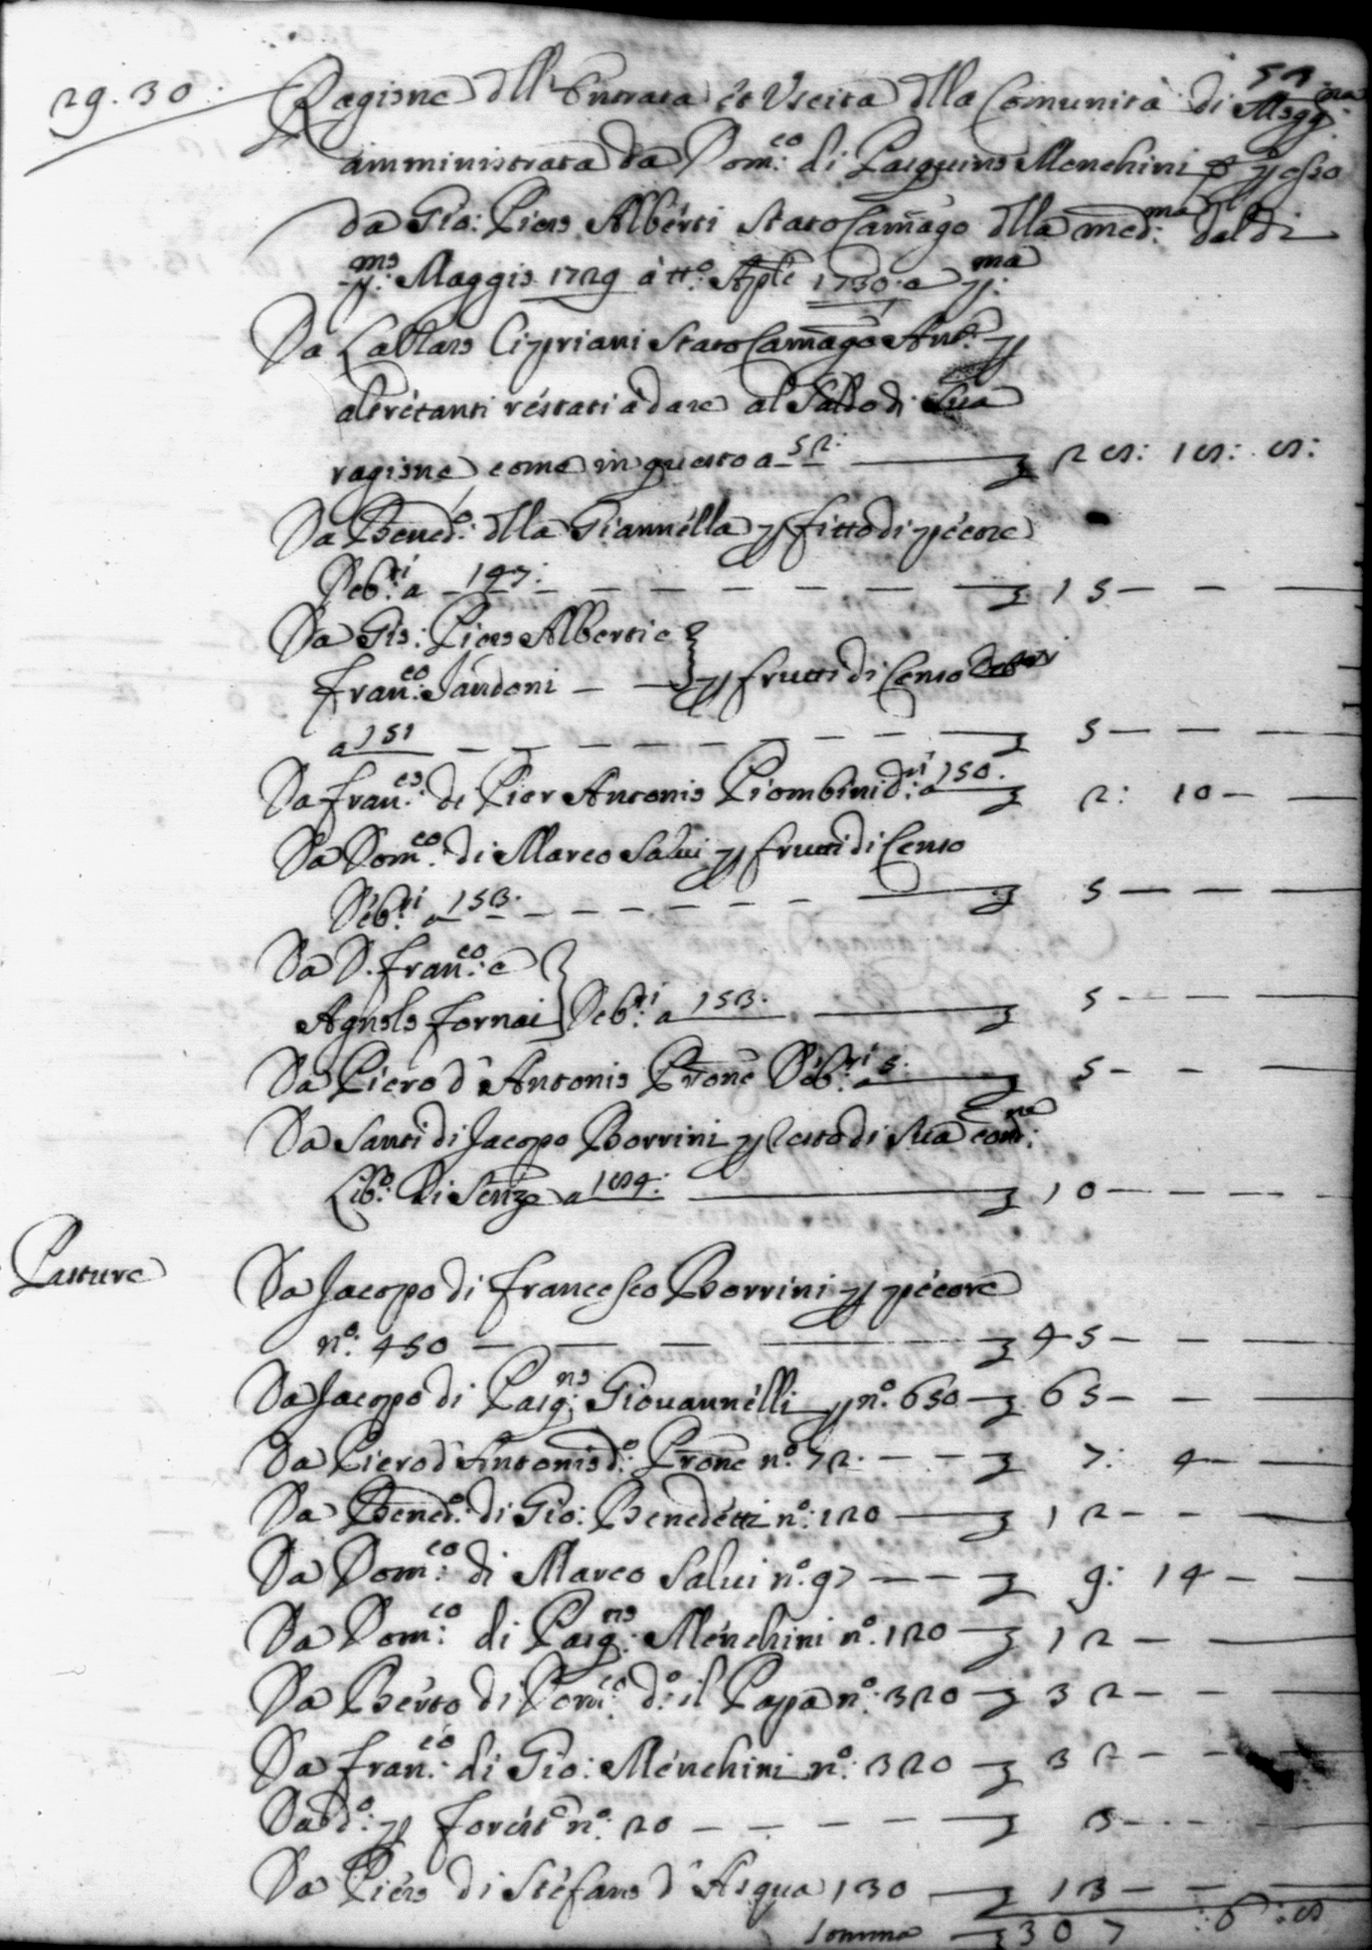 51
29. 30.
Ragione dll' Entrata et Uscita dlla Comunità di Mogg:na
amministrata da Dom:co di Pasquino Menchini p esso
da Gio: Piero Alberti Stato Camago dlla med:ma dal di
p:mo Maggio 1729 a tt:o Aple 1730 a p:ma
Da Lattaro Cipriani Stato Camago Ant:e p
altretanti restati à dare al Saldo di Sua
ragione come in questo a 52: 28: 18: 8:
Da Bened:o dlla Giannella p fitto di pecore
Deb:ri a 147: 15
Da Gio: Piero Alberti e
Fran:co Sandoni p frutti di Censo Deb:ri
a 151 5
Da Fran:co di Pier Antonio Piombini d:ri a 150. 2: 10
Da Dom:co di Marco Salvi p frutti di Censo
Deb:ri a 153. 5
Da D. Fran:co e
Agnolo Fornai Deb:ri a 153. 5
Da Piero d'Antonio Prone Deb:ri a 5. 5
Da Santi di Jacopo Borrini p resto di Sua con:ne
Lib:o di Senza a 184: 10
Pasture
Da Jacopo di Francesco Borrini p pecore
n:o 450 45
Da Jacopo di Pasq:no Giovannelli p n:o 650 65
Da Piero d'Antonio d:o Prone n:o 72. 7: 4
Da Bened:o di Gio: Benedetti n:o 120 12
Da Dom:co di Marco Salvi n:o 97 9: 14
Da Dom:co di Pasq:no Menchini n:o 120 12
Da Berto di Dom:co d:o il Papa n:o 320 32
Da Fran:co di Gio: Menchini n:o 320 32
Da d:o p Forest:o n:o 20 3
Da Piero di Stefano d'Asqua 130 13
Somma 307 :6 :8